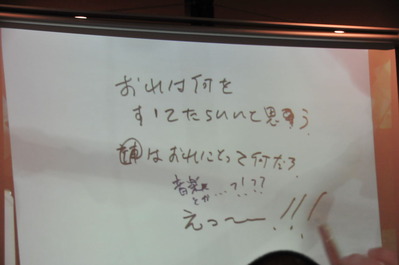 おれは何を
すてたらいいと思う
はおれにとって何だろ
音楽
とか…?!??
えっ〜!!!